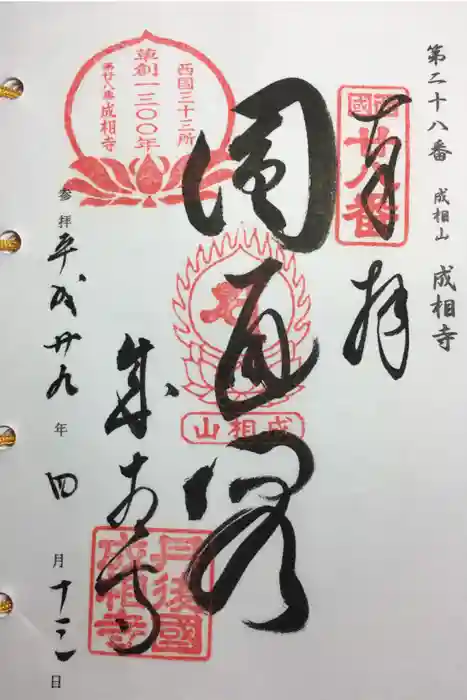 第二十八番 成相山 成相寺
西國
廿八番
奉拝
圓通閣
成相山
西国三十三所
草創一三〇〇年
廿八番 成相寺
成相寺
丹後國
成相寺
参拝 平成廿九年四月十二日